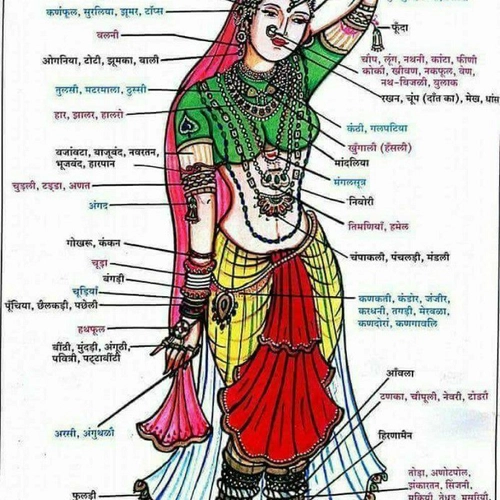 कर्णफूल, सुरलिया, झूमर, टॉप्स
वलनी
ओगनिया, टोटी, झूमका, वाली
तुलसी, मटरमाला, ठुस्सी
हार, झालर, हालरो
वाजूवंद, नवरतन,
भूजबंद, हारपान
चुड़ली, टड्डा, अणत
अंगद
गोखरू, कंकन
चूड़ा
बंगड़ी
चूड़ियाँ
पूंचिया, छैलकड़ी, पछेली
हथफूल
बींठी, मुंदड़ी, अंगूठी,
पवित्री, पट्टाबींटी
अरसी, अंगुथळी
फुलड़ी
फूँदा
चोप, लूंग, नथनी, कांटा, फीणी
कोको, खीवण, नकफूल, वेण,
नथ-बिजळी, बुलाक
रखन, चूंप (दाँत का), मेख, धांस
कंठी, गलपटिया
खूंगाली (हँसली)
मांदलिया
मंगलसूत्र
निबोरी
तिमणियाँ, हमेल
चंपाकली, पंचलड़ी, मंडली
कणकती, कंडोर, जंजीर,
करधनी, तगड़ी, मेखळा,
कणदोरां, कणगावलि
आँवला
टणका, चौपूली, नेवरी, टोडरो
हिरणामैन
तोड़ा, अणोटपोल,
झंकारतन, सिंजनी,